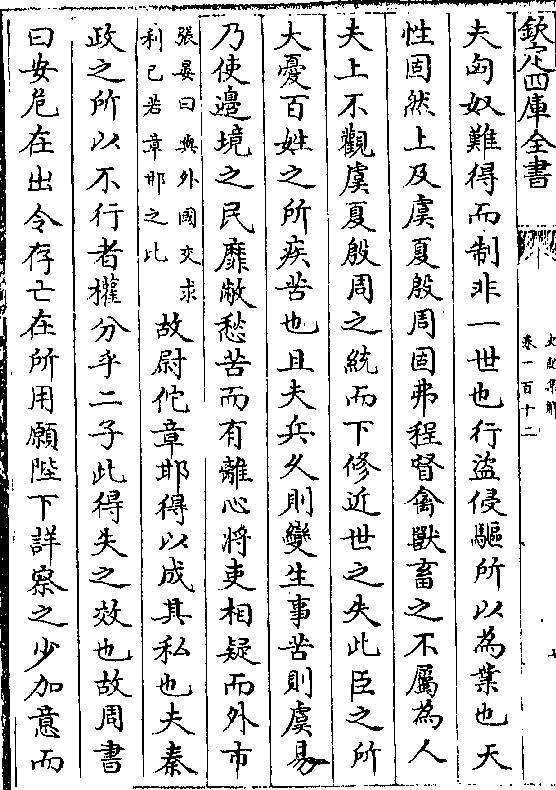 欽定四庫全書
史記集解
卷一百十二
夫匈奴難得而制非一世也行盜侵驅所以為業也天
性固然上及虞夏殷周固弗程督禽獸畜之不屬為人
夫上不觀虞夏殷周之統而下修近世之失此臣之所
大憂百姓之所疾苦也且夫兵久則變生事苦則慮易
乃使邊境之民靡敝愁苦而有離心將吏相疑而外市
張晏曰與外國交求
利己若章邯之比
故尉佗章邯得以成其私也夫秦
政之所以不行者權分乎二子此得失之效也故周書
曰安危在出令存亡在所用願陛下詳察之少加意而